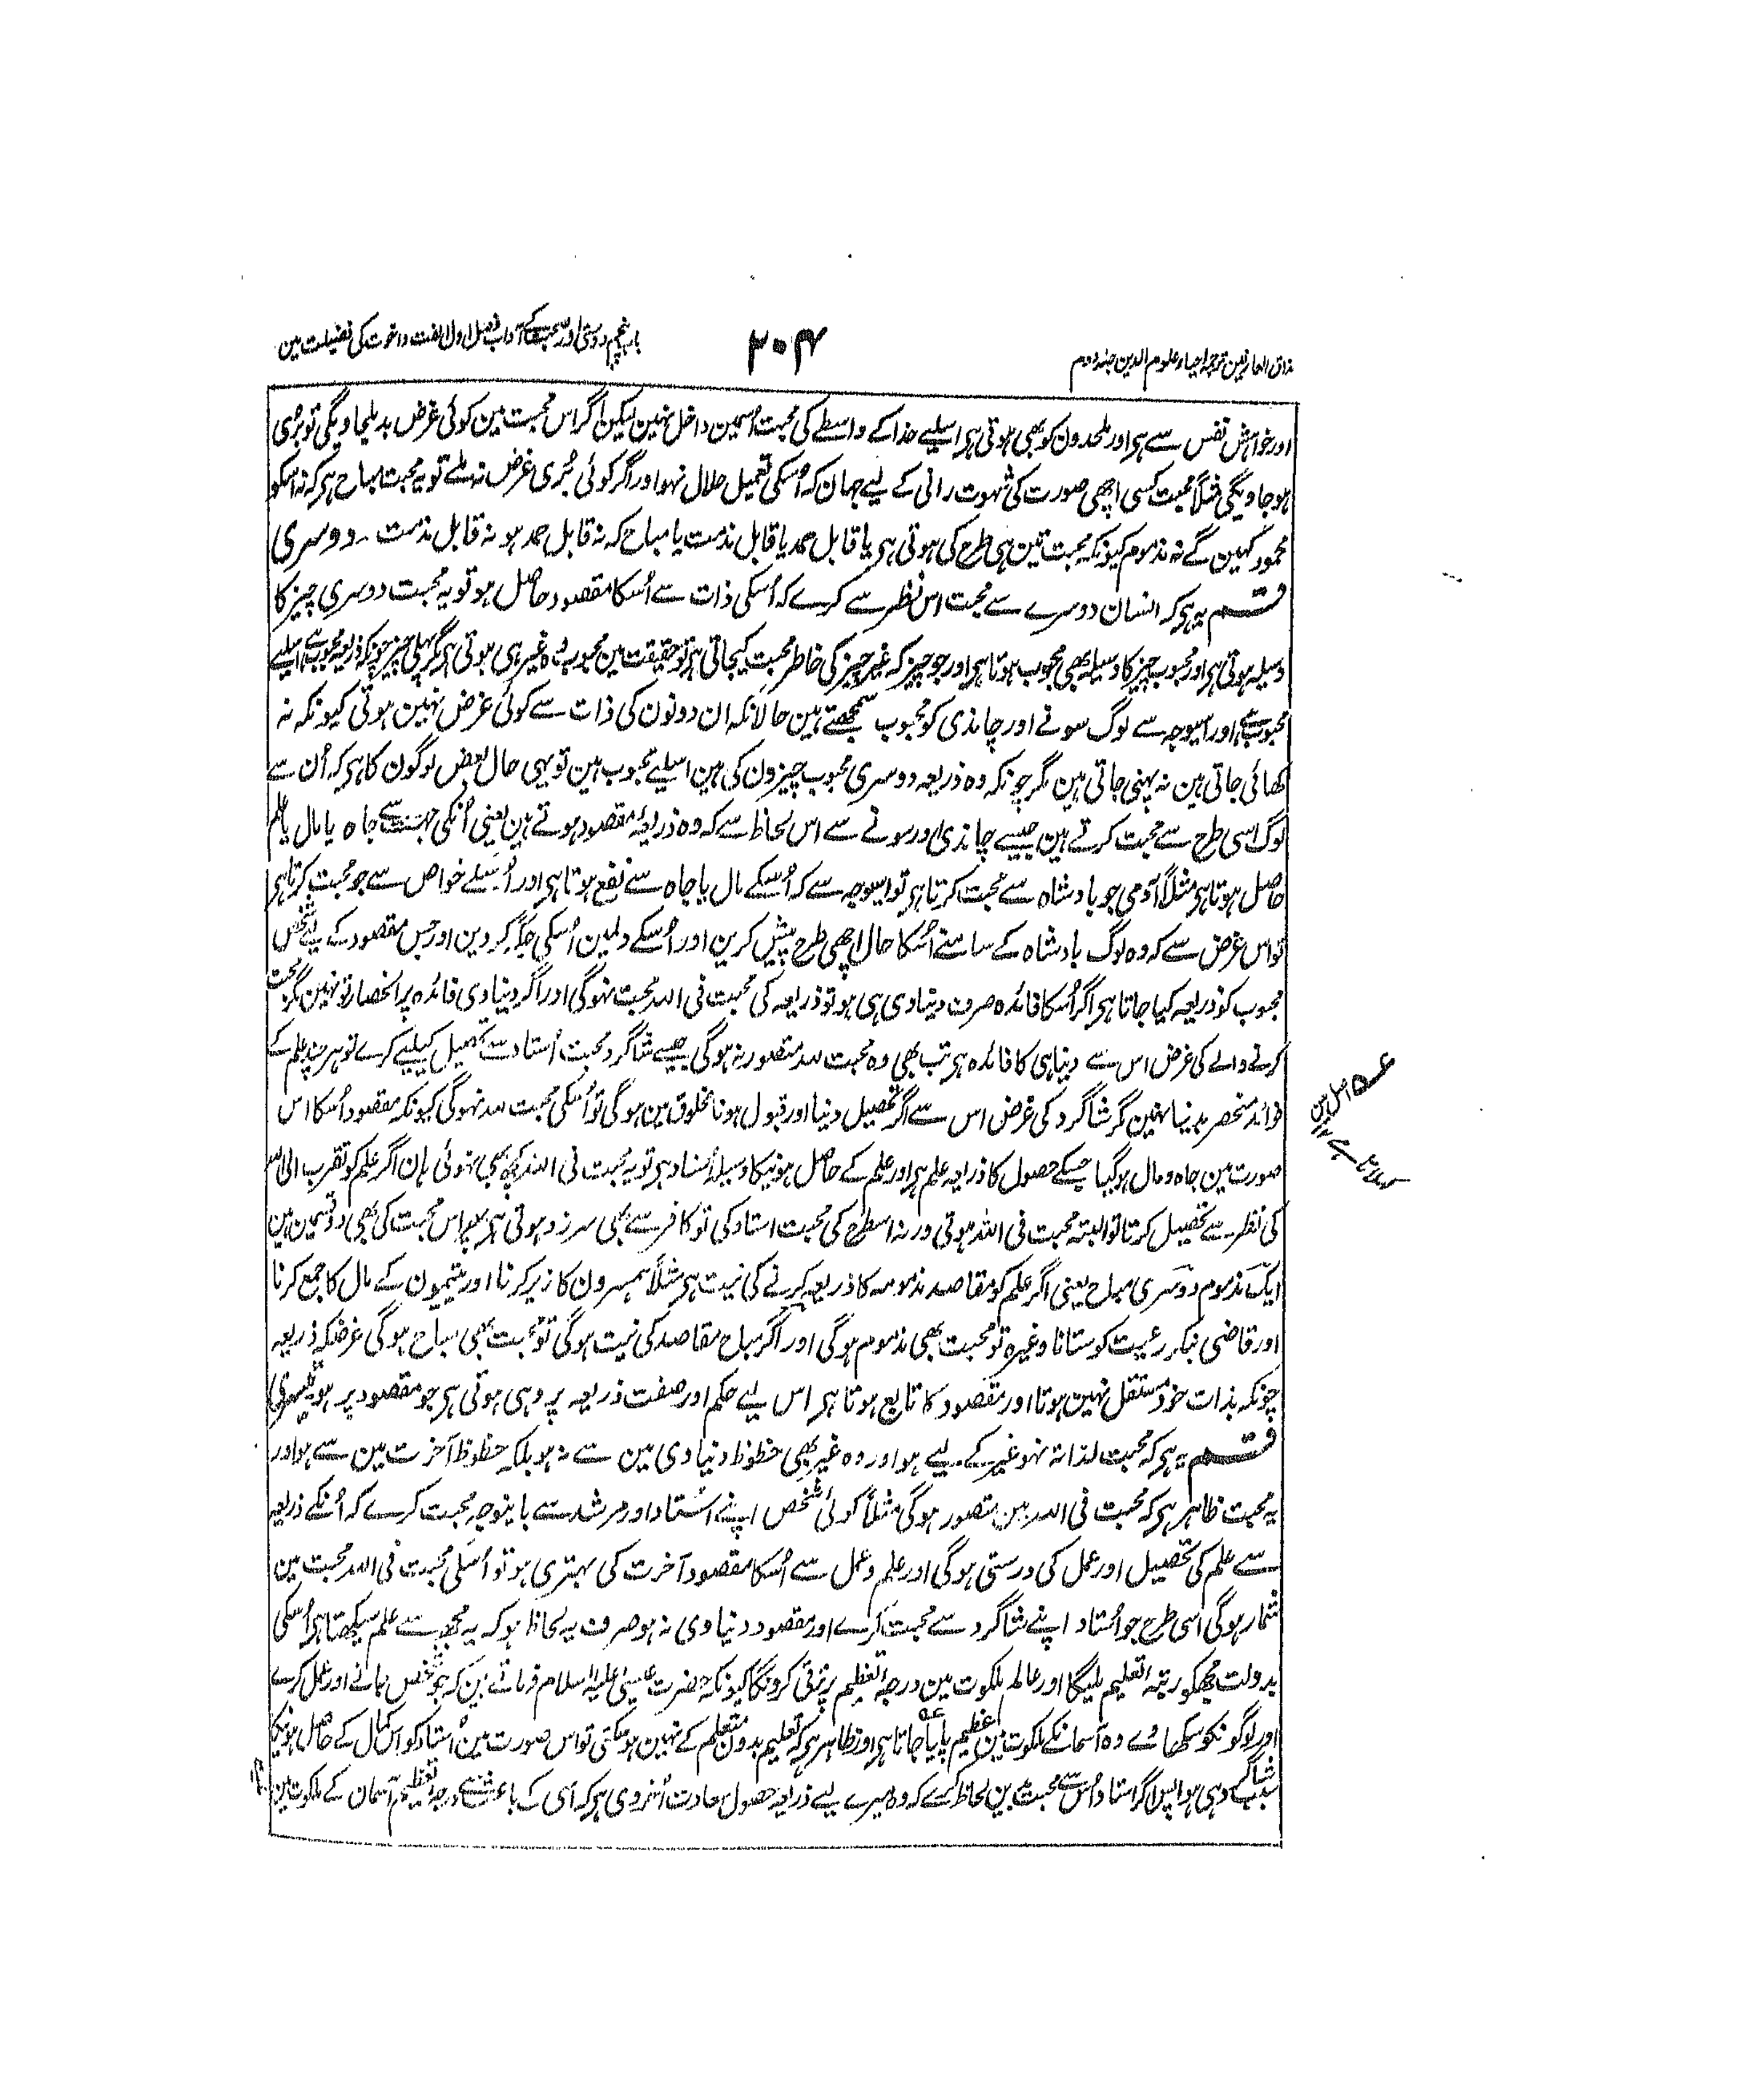 مذاق العارفین ترجمہ احیاء علوم الدین جلد دوم
۳۰۴
باب پنجم دوستی اور صحبت کے آداب فصل اول الفت و اخوت کی فضیلت مین
اور خواہش نفس سے ہی اور ملحدون کو بھی ہوتی ہی اسلیے خدا کے واسطے کی محبت اُسمین داخل نہین لیکن اگر اس محبت مین کوئی غرض بد ملجاویگی تو بُری
ہوجاویگی مثلاً محبت کسی اچھی صورت کی شہوت رانی کے لیے جہان کہ اُسکی تعمیل حلال نہو اور اگر کوئی بُری غرض نہ ملے تو یہ محبت مباح ہی کہ نہ اسکو
محمود کہین گے نہ مذموم کیونکہ محبت تین ہی طرح کی ہوتی ہی یا قابل حمد یا قابل مذمت یا مباح کہ نہ قابل حمد ہو نہ قابل مذمت ۔ دوسری
قسم یہ ہی کہ انسان دوسرے سے محبت اس نظر سے کرے کہ اُسکی ذات سے اُسکا مقصود حاصل ہو تو یہ محبت دوسری چیز کا
وسیلہ ہوتی ہی اور محبوب چیز کا وسیلہ بھی محبوب ہوتا ہی اور جو چیز کہ غیر چیز کی خاطر محبت کیجاتی ہی تو حقیقت مین محبوب وہ غیر ہی ہوتی ہی مگر پہلی چیز چونکہ ذریعہ محبوب ہے اسلیے
محبوب ہے اور اسیوجہ سے لوگ سونے اور چاندی کو محبوب سمجھتے ہین حالانکہ ان دونون کی ذات سے کوئی غرض نہین ہوتی کیونکہ نہ
کھائی جاتی ہین نہ پہنی جاتی ہین مگر چونکہ وہ ذریعہ دوسری محبوب چیزون کی ہین اسلیے محبوب ہین تو یہی حال بعض لوگون کا ہی کہ اُن سے
لوگ اسی طرح سے محبت کرتے ہین جیسے چاندی اور سونے سے اس لحاظ سے کہ وہ ذریعہ مقصود ہوتے ہین یعنی اُنکی جہت سے جاہ یا مال یا علم
حاصل ہوتا ہی مثلاً آدمی جو بادشاہ سے محبت کرتا ہی تو اسیوجہ سے کہ اُسکے مال یا جاہ سے نفع ہوتا ہی اور اُسکے خواص سے جو محبت کرتا ہی
تو اس غرض سے کہ وہ لوگ بادشاہ کے سامنے اُسکا حال اچھی طرح پیش کرین اور اُسکے دلمین اُسکی جگہ کر دین اور جس مقصود کے لیے شخص
محبوب کو ذریعہ کیا جاتا ہی اگر اُسکا فائدہ صرف دنیاوی ہی ہو تو ذریعہ کی محبت فی اللہ محبت نہوگی اور اگر دنیاوی فائدہ پر انحصار تو نہین مگر محبت
کرنے والے کی غرض اس سے دنیا ہی کا فائدہ ہی تب بھی وہ محبت للہ متصور نہ ہوگی جیسے شاگرد محبت اُستاد سے تحصیل کیلیے کرے تو ہر چند علم کے
فوائد منحصر بدنیا نہین مگر شاگرد کی غرض اس سے اگر تحصیل دنیا اور قبول ہونا مخلوق مین ہوگی تو اُسکی محبت للہ نہوگی کیونکہ مقصود اُسکا اس
صورت مین جاہ و مال ہوگیا جسکے حصول کا ذریعہ علم ہی اور علم کے حاصل ہونیکا وسیلہ اُستاد ہی تو یہ محبت فی اللہ کچھ بھی نہوئی ہان اگر علم کو تقرب الی اللہ
کی نظر سے تحصیل کرتا تو البتہ محبت فی اللہ ہوتی ورنہ اسطرح کی محبت استاد کی تو کافر سے بھی سرزد ہوتی ہی پھر اس محبت کی بھی دو قسمین ہین
ایک مذموم دوسری مباح یعنی اگر علم کو مقاصد مذمومہ کا ذریعہ کرنے کی نیت ہی مثلاً ہمسرون کا زیر کرنا اور یتیمون کے مال کا جمع کرنا
اور قاضی بنکر رعیت کو ستانا وغیرہ تو محبت بھی مذموم ہوگی اور اگر مباح مقاصد کی نیت ہوگی تو محبت بھی مباح ہوگی غرضکہ ذریعہ
چونکہ بذات خود مستقل نہین ہوتا اور مقصود کا تابع ہوتا ہی اس لیے حکم اور صفت ذریعہ پر وہی ہوتی ہی جو مقصود پر ہو تیسری
قسم یہ ہی کہ محبت لذاتہ نہو غیر کے لیے ہو اور وہ غیر بھی حظوظ دنیاوی مین سے نہ ہو بلکہ حظوظ آخرت مین سے ہو اور
یہ محبت ظاہر ہی کہ محبت فی اللہ مین متصور ہوگی مثلاً کوئی شخص اپنے اُستاد اور مرشد سے باینوجہ محبت کرے کہ اُنکے ذریعہ
سے علم کی تحصیل اور عمل کی درستی ہوگی اور علم و عمل سے اُسکا مقصود آخرت کی بہتری ہو تو اُسکی محبت فی اللہ محبت مین
شمار ہوگی اسی طرح جو اُستاد اپنے شاگرد سے محبت کرے اور مقصود دنیاوی نہ ہو صرف یہ لحاظ ہو کہ یہ مجھ سے علم سیکھتا ہی اُسکی
بدولت مجھکو رتبہ تعلیم ملیگا اور عالم ملکوت مین درجہ تعظیم پر ترقی کرونگا کیونکہ حضرت عیسیٰ علیہ السلام فرماتے ہین کہ جو شخص جانے اور عمل کرے
اور لوگونکو سکھاے وہ آسمانکے ملکوت مین عظیم پایا جاتا ہی اور ظاہر ہی کہ تعلیم بدون متعلم کے نہین ہوسکتی تو اس صورت مین اُستاد کو اس کمال کے حاصل ہونیکا
سبب شاگرد ہی ہوا پس اگر استاد اُس سے محبت بدین لحاظ کرے کہ وہ میرے لیے ذریعہ حصول سعادت اُخروی ہی کہ اُسی کے باعث سے درجہ تعظیم آسمان کے ملکوت مین